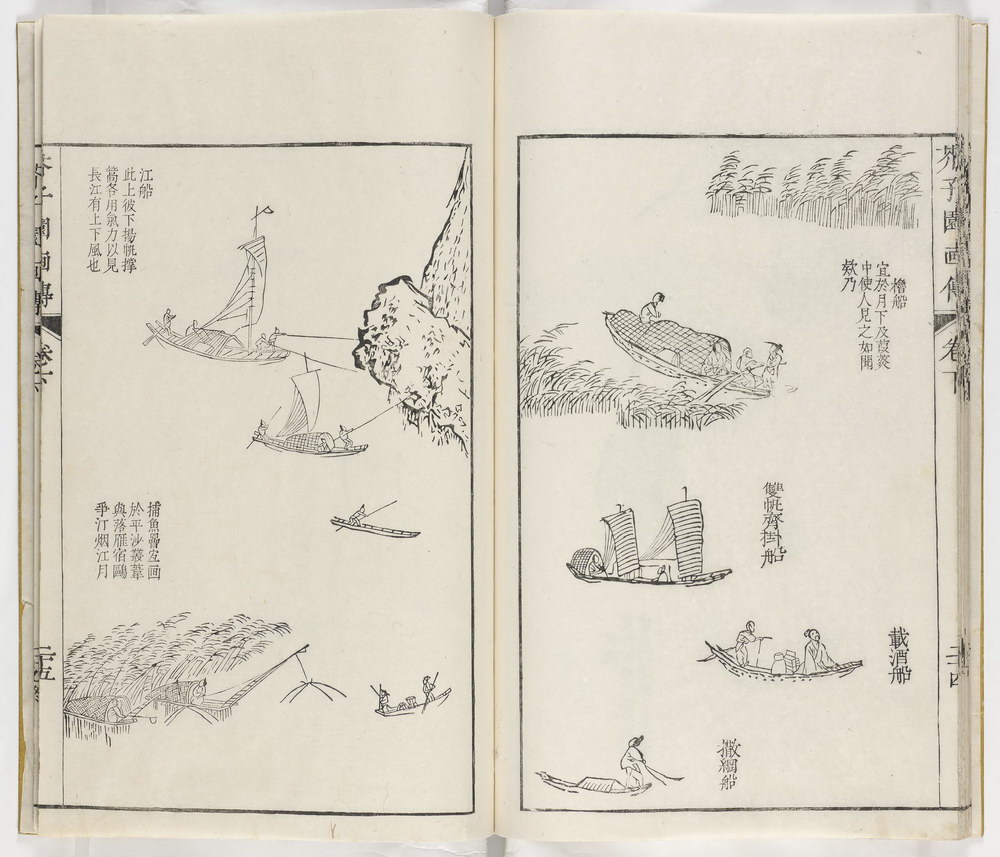 芥子園画傳
卷下
二十四
櫓船
宜於月下及葭葦
中使人見之如聞
欸乃
雙帆齊掛船
載酒船
撒網船
江船
此上彼下揚帆撑
篙各用氣力以見
長江有上下風也
捕魚罾宜画
於平沙叢葦
與落雁宿鷗
爭汀烟江月
芥子園画傳
卷下
二十五